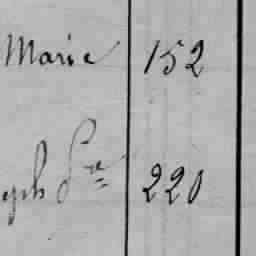 Marie 152
eph Fre 220